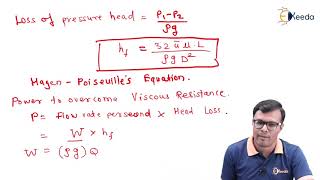 Loss of pressure head = P₁-P₂ / ρg
hf = 32 ū μ. L / ρg D²
Hagen - Poiseuille's Equation.
Power to overcome Viscous Resistance.
P = flow rate per second × Head Loss.
= W × hf
W = (ρg) Q
Keeda